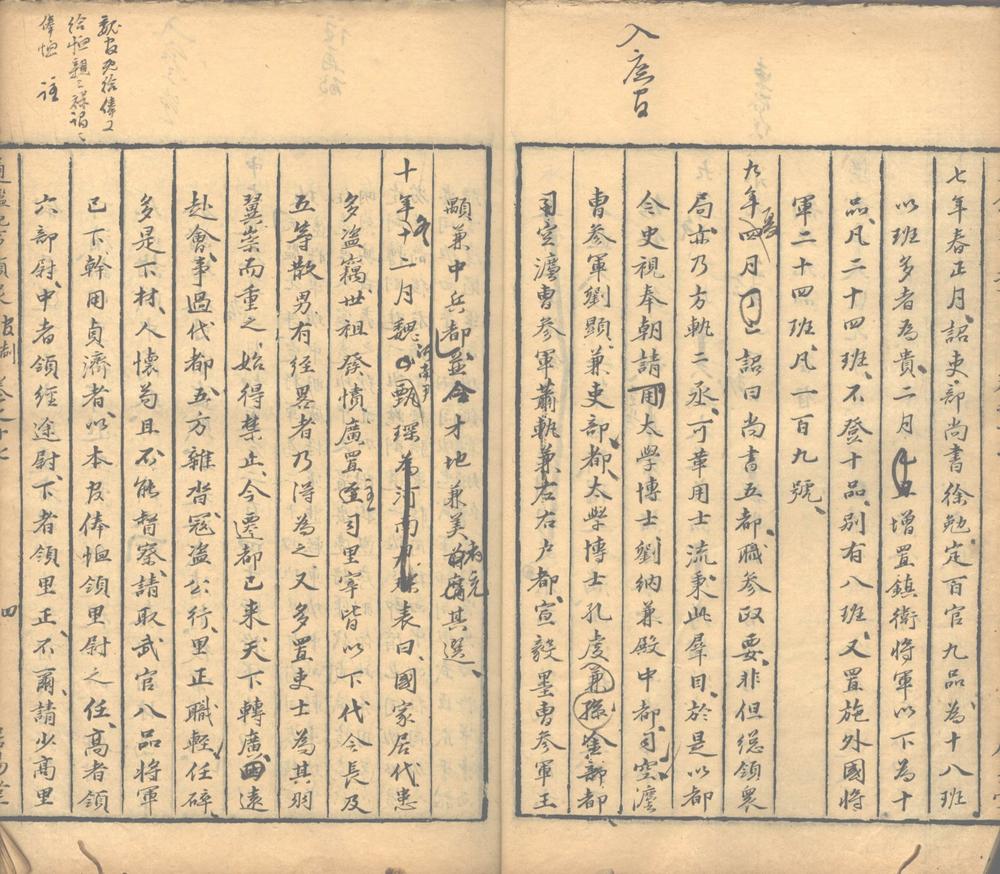 入庶官
七年春正月、詔吏部尚書徐勉定百官九品為十八班
以班多者為貴、二月增置鎮衛將軍以下為十
品、凡二十四班、不登十品、別有八班、又置施外國將
軍二十四班、凡一百九號、
九年夏四月詔曰尚書五都、職參政要、非但總領眾
局、亦乃方軌二丞、可革用士流、秉此羣目、於是以都
令史視奉朝請、用太學博士劉納兼殿中都、司空灋
曹參軍劉顯兼吏部都、太學博士孔虔孫兼金部都
司空灋曹參軍蕭軌兼左右戶都、宣毅墨曹參軍王
顒兼中兵都、並以才地兼美首膺其選、
十年冬十二月魏甄琛為河南尹表曰、國家居代患
多盜竊、世祖發憤廣置主司里宰皆以下代令長及
五等散男有經畧者乃得為之、又多置吏士為其羽
翼、崇而重之、始得禁止、今遷都已來、天下轉廣、四遠
赴會、事過代都、五方雜沓、寇盜公行、里正職輕、任碎
多是下材、人懷苟且、不能督察、請取武官八品將軍
已下幹用貞濟者、以本官俸恤領里尉之任、高者領
六部尉、中者領經途尉、下者領里正、不爾、請少高里
四
俸恤 註